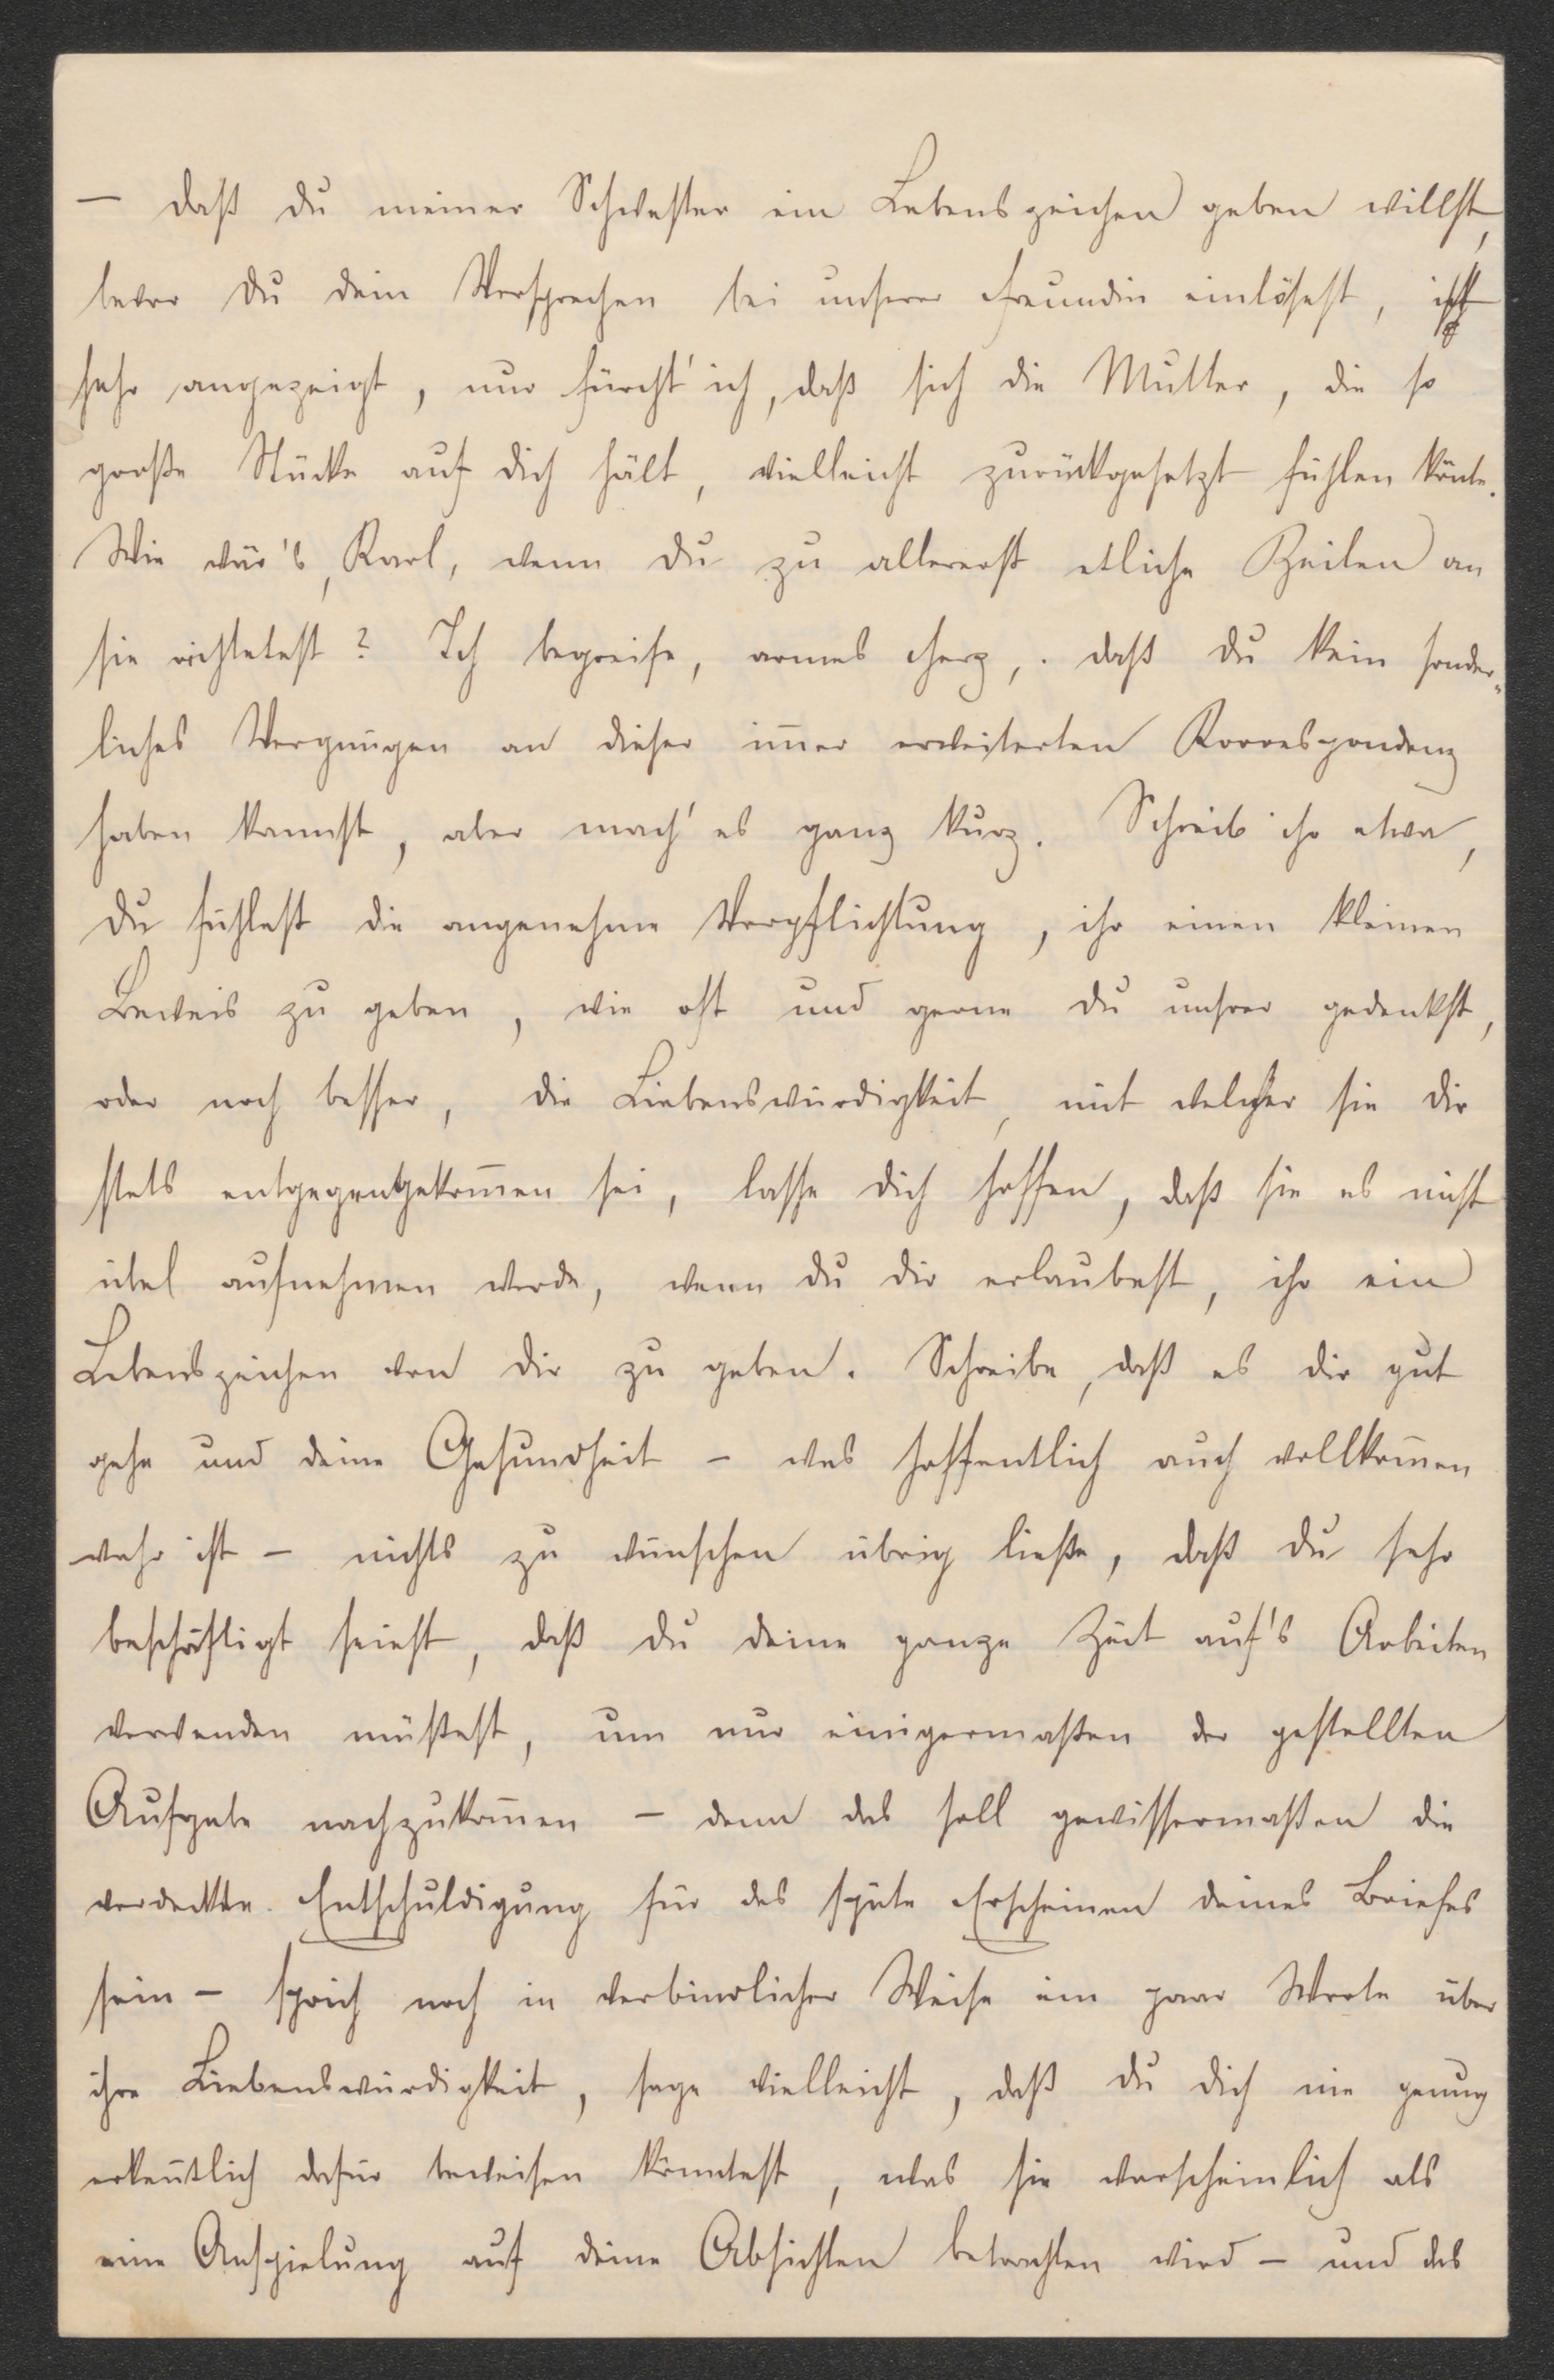 — daß du meiner Schwester ein Lebenszeichen geben willst,
bevor du dein Versprechen bei unserer Freundin einlösest, ist
sehr angezeigt, nur fürcht' ich, daß sich die Mutter, die so
große Stücke auf dich hält, vielleicht zurückgesetzt fühlen könte.
Wie wär's, Karl, wenn du zu allererst etliche Zeilen an
sie richtetest? Ich begreife, armes Herz, daß du kein sonder-
liches Vergnügen an dieser im̅er erweiterten Korrespondenz
haben kannst, aber mach' es ganz kurz. Schreib ihr etwa,
du fühlest die angenehme Verpflichtung, ihr einen kleinen
Beweis zu geben, wie oft und gerne du unsrer gedenkst,
oder noch besser, die Liebenswürdigkeit, mit welcher sie dir
stets entgegengekom̅en sei, lasse dich hoffen, daß sie es nicht
übel aufnehmen werde, wenn du dir erlaubest, ihr ein
Lebenszeichen von dir zu geben. Schreibe, daß es dir gut
gehe und deine Gesundheit – was hoffentlich auch vollkom̅en
wahr ist – nichts zu wünschen übrig ließe, daß du sehr
beschäftigt seiest, daß du deine ganze Zeit auf's Arbeiten
verwenden müßtest, um nur einigermaßen der gestellten
Aufgabe nachzukom̅en – denn das soll gewissermaßen die
verdeckte Entschuldigung für das späte Erscheinen deines Briefes
sein – sprich noch in verbindlicher Weise ein paar Worte über
ihre Liebenswürdigkeit, sage vielleicht, daß du dich nie genug
erken̅tlich dafür beweisen könntest, was sie warscheinlich als
eine Anspielung auf deine Absichten betrachten wird – und das